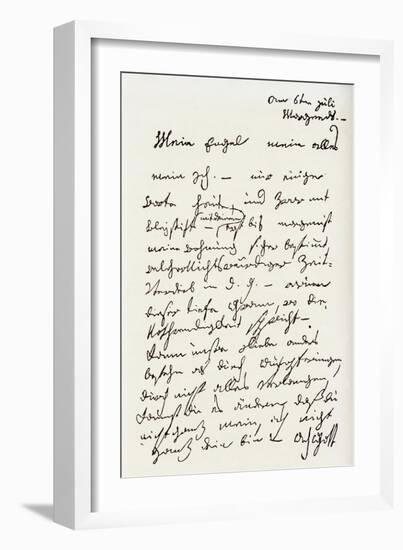 am 6ten Juli
Morgends. –
Mein Engel mein alles
mein Ich. – nur einige
Worte heute, und zwar mit
Bleistift – (mit deinem) erst bis morgen ist
meine Wohnung sicher bestimt,
welcher Nichtswürdiger Zeit-
Verderb in d. g. – warum
dieser tiefe Gram, wo die
Nothwendigkeit spricht –
Kann unsre Liebe anders
bestehn als durch Aufopferungen,
durch nicht alles verlangen,
kannst du es ändern daß du
nicht ganz mein, ich nicht
ganz dein bin – Ach Gott